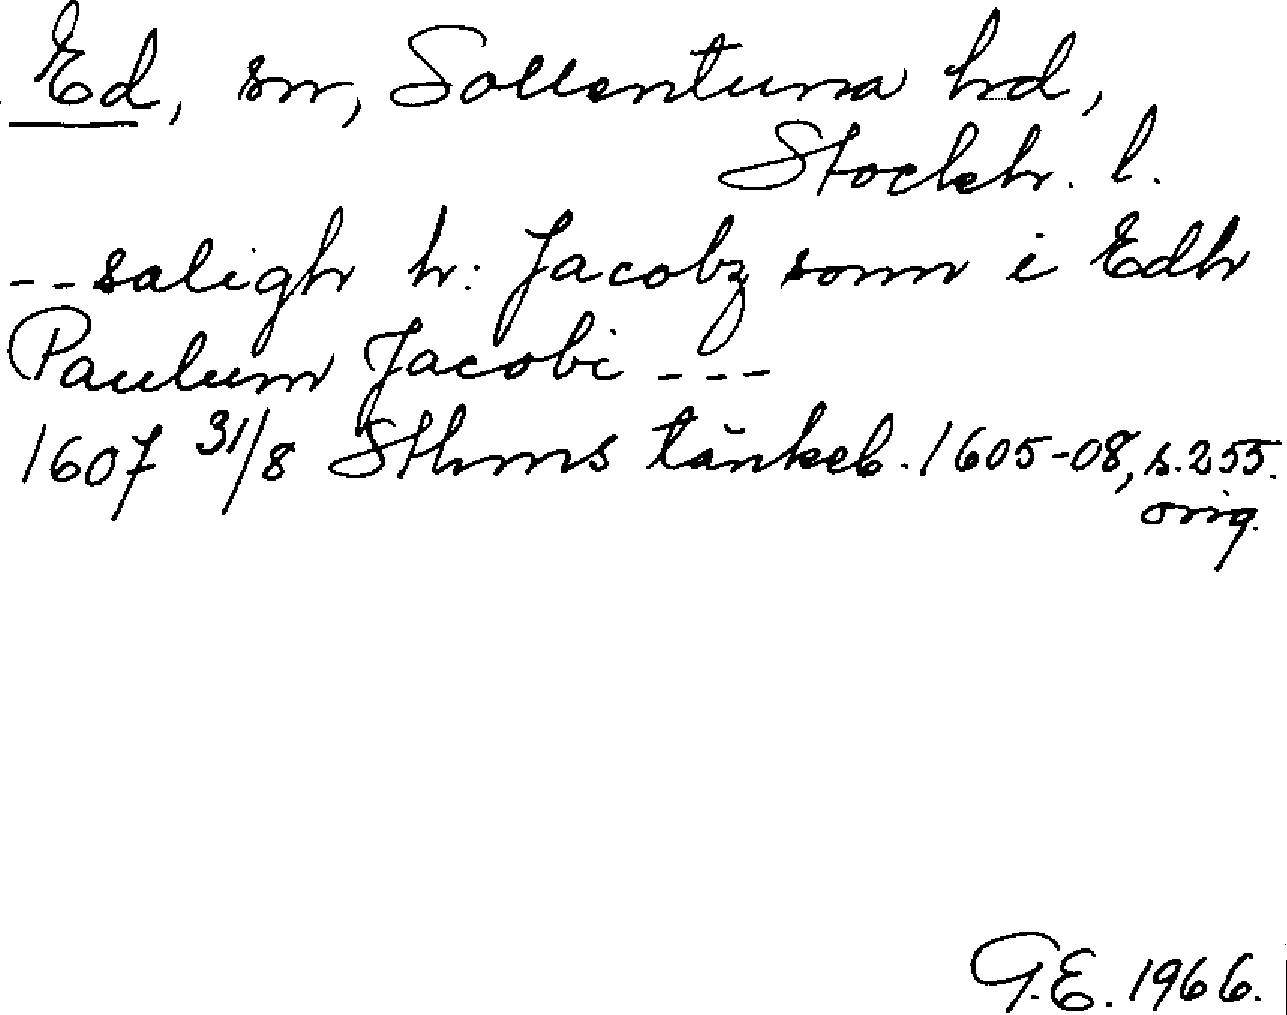 Ed, sn, Sollentuna hd,
Stockh. l.
--saligh h: Jacobz sonn i Edh
Paulum Jacobi ---
1607 31/8 Sthms tänkeb. 1605-08, s. 255.
orig.
G.E. 1966.